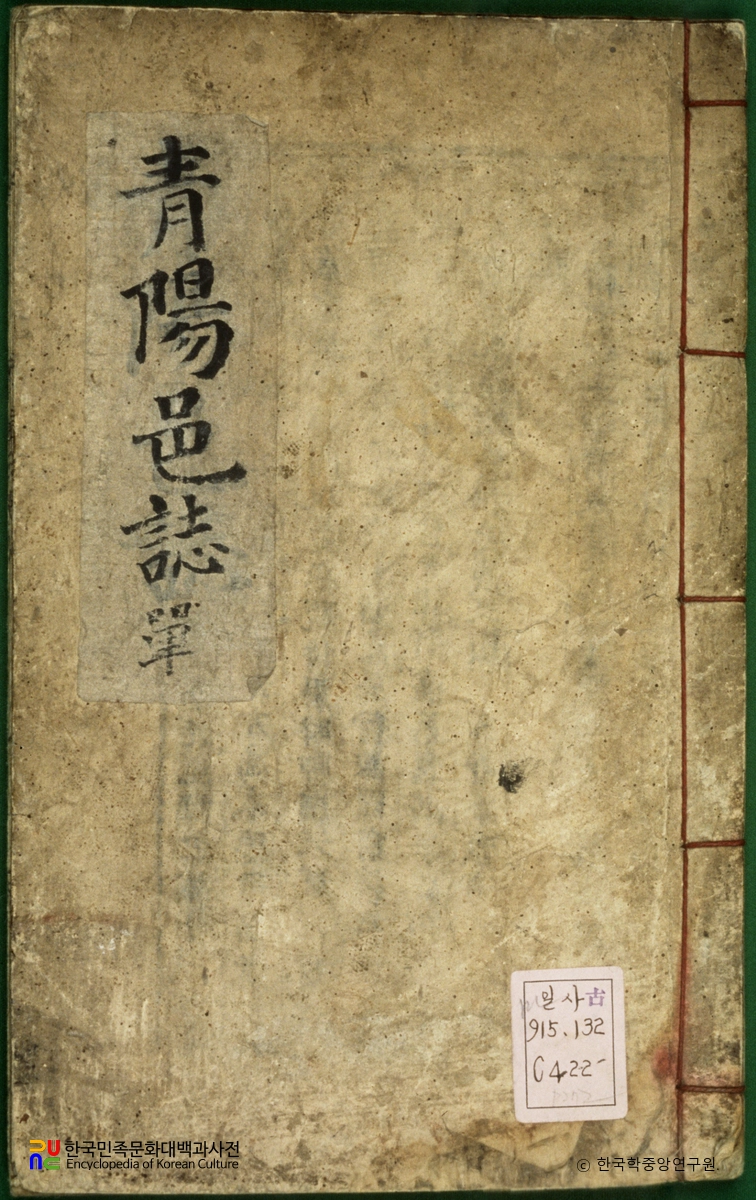 青陽邑誌 單
일사 古
915.132
C422
한국민족문화대백과사전
Encyclopedia of Korean Culture
© 한국학중앙연구원